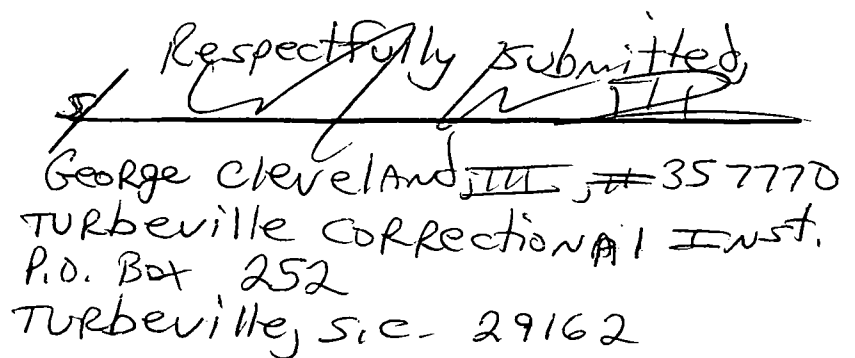 Respectfully Submitted,
s/ III
George Cleveland, III, #357770
Turbeville Correctional Inst.
P.O. Box 252
Turbeville, S.C. 29162